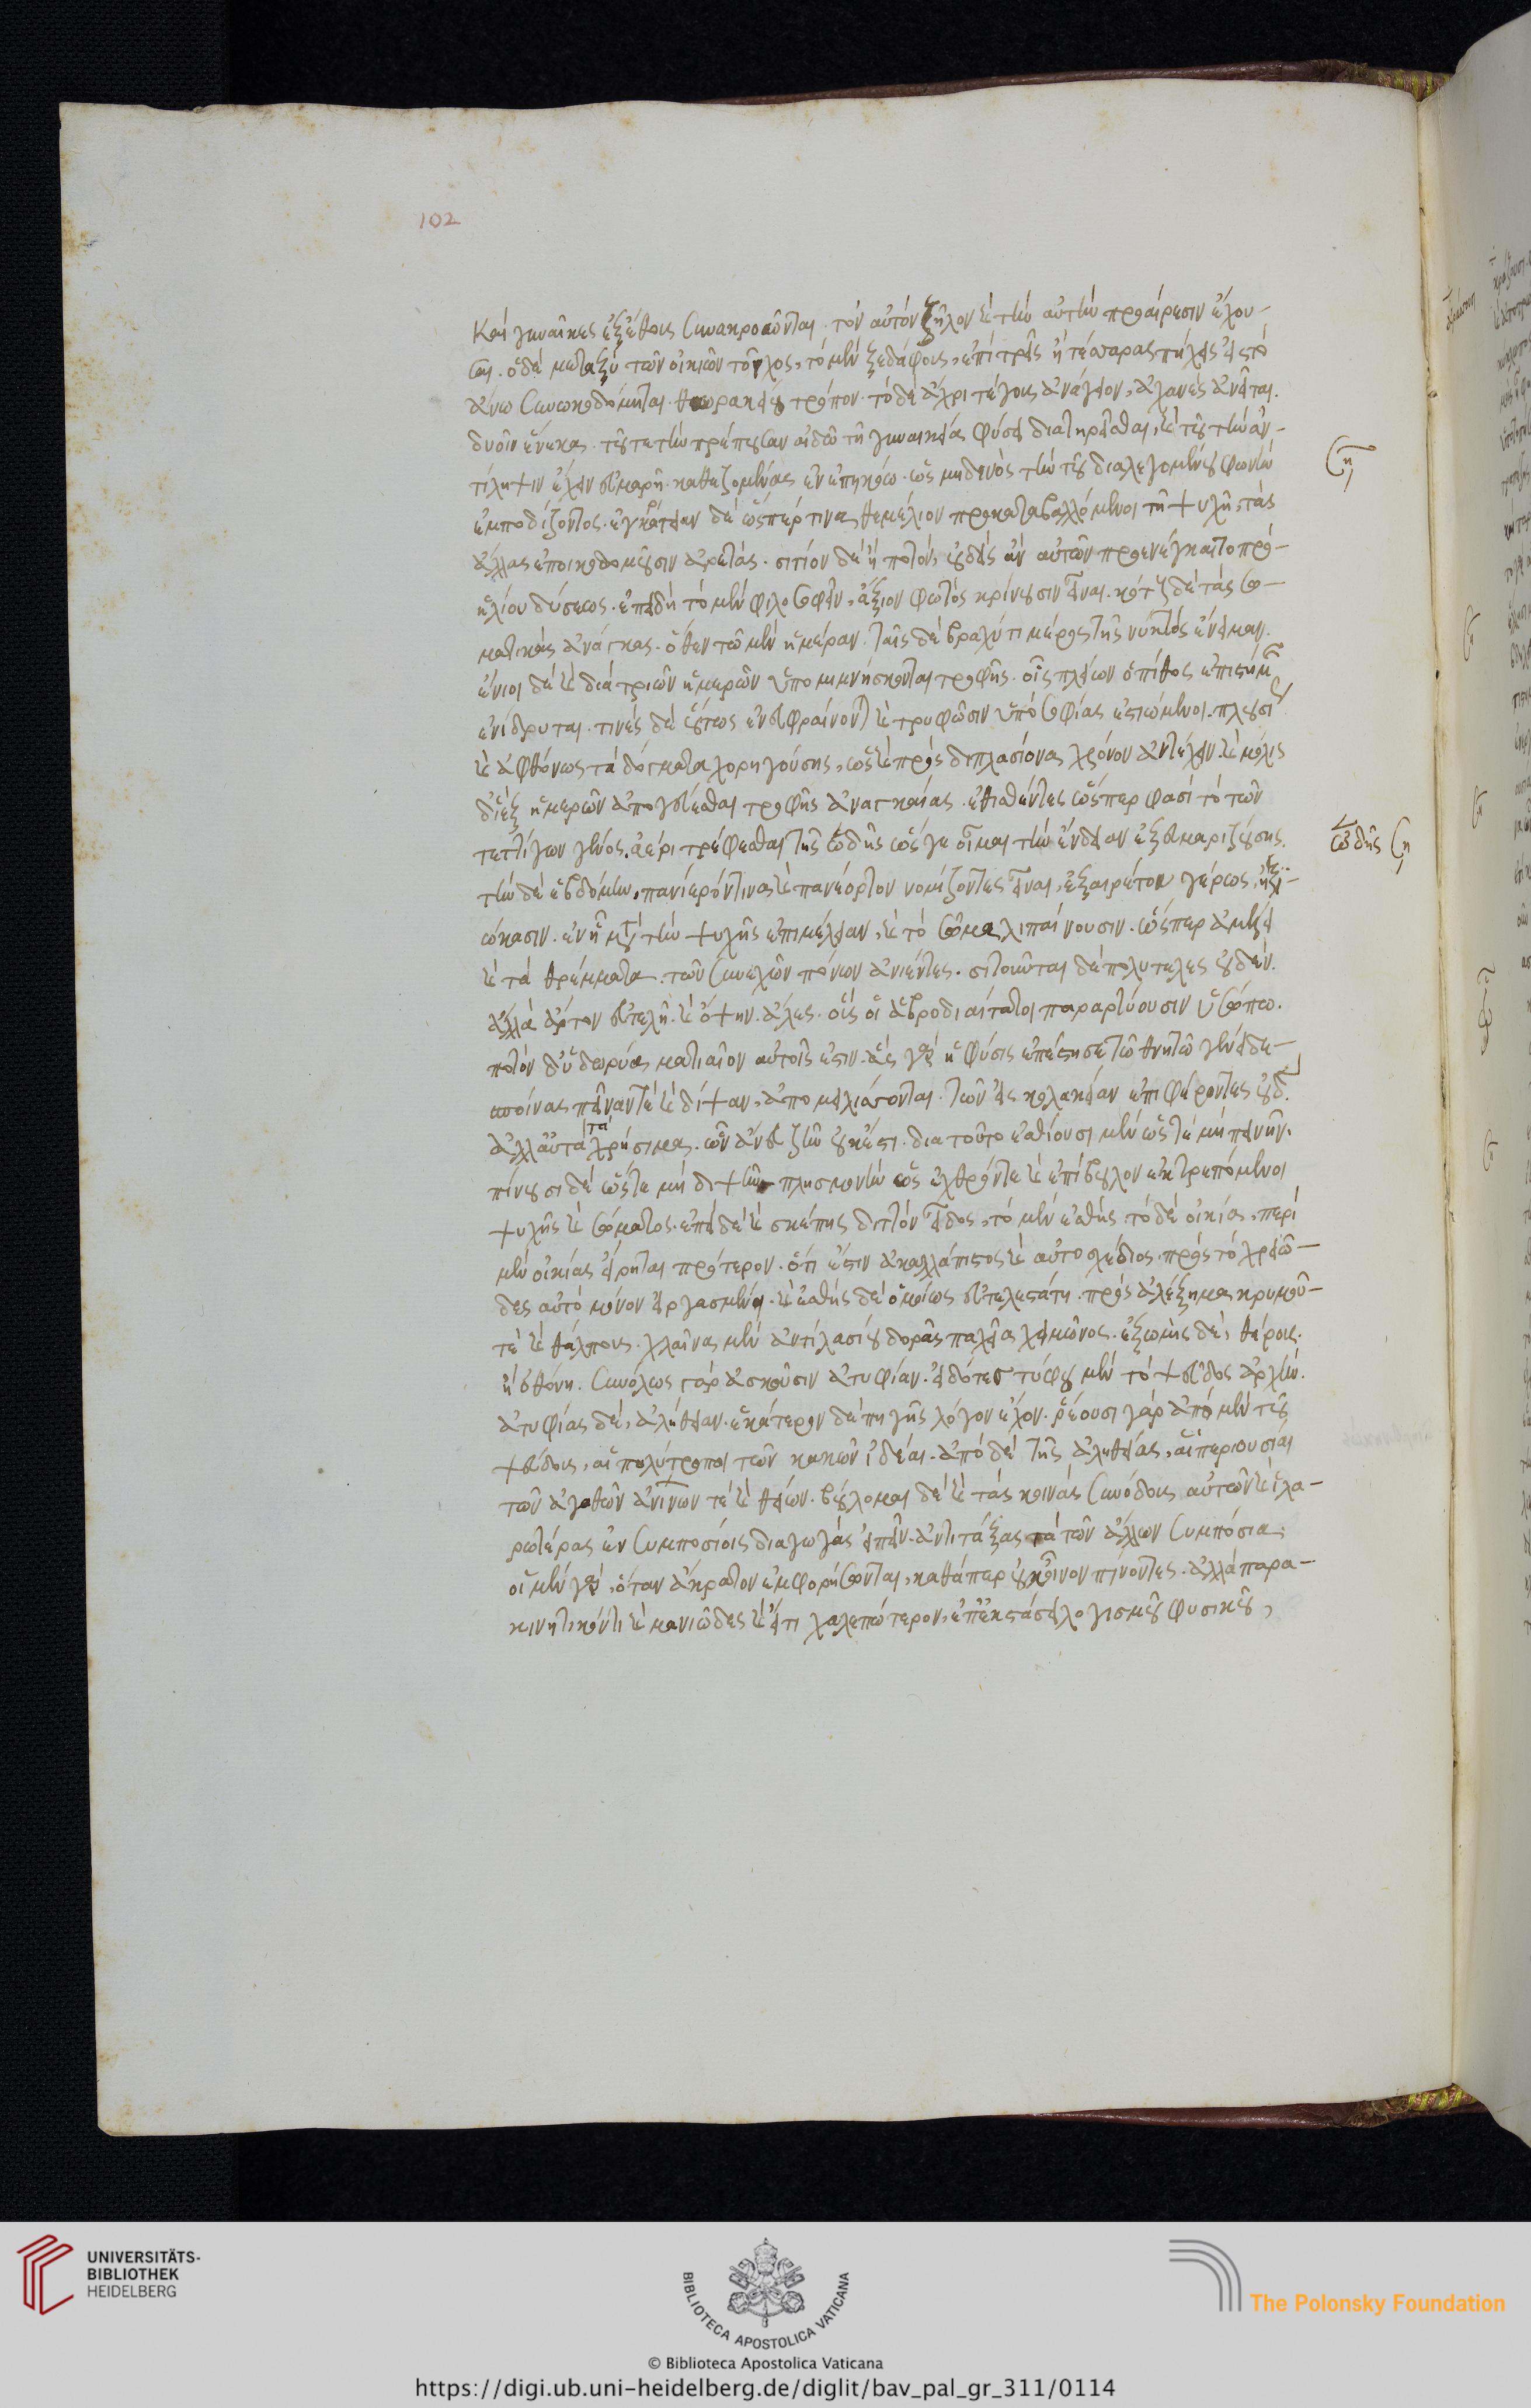 102
Καὶ γυναῖκες ἐξ ἔθους συνακροῶνται. τὸν αὐτὸν ζῆλον καὶ τὴν αὐτὴν προαίρεσιν ἔχου-
σαι. ὁ δὲ μεταξὺ τῶν οἰκιῶν τοῖχος, τὸ μὲν ἐξεδάφους, ἐπὶ τρεῖς ἢ τέσσαρας πήχεις εἰς τὸ
ἄνω συνωκοδόμηται. θωρακείου τρόπον. τὸ δὲ ἄχρι τέγους ἀνάγειον, ἀχανὲς ἀνεῖται.
δυοῖν ἕνεκα. τοῦ τε τὴν πρέπουσαν αἰδῶ τῆ γυναικείας φύσει διατηρεῖσθαι, καὶ τοῦ τὴν ἀν-
τίληψιν ἔχειν εὐμαρῆ. καθεζομένας ἐν ἐπηκόω. ὡς μηδενὸς τὴν τοῦ διαλεγομένου φωνὴν
ἐμποδίζοντος. ἐγκράτειαν δὲ ὥσπέρ τινα θεμέλιον προκαταβαλλόμενοι τῆ ψυχῆ, τὰς
ἄλλας ἐποικοδομοῦσιν ἀρετάς. σιτίον δὲ ἢ ποτόν, οὐδεὶς ἂν αὐτῶν προσενέγκαιτο πρὸ-
ἡλίου δύσεως. ἐπειδὴ τὸ μὲν φιλοσοφεῖν, ἄξιον φωτὸς κρίνουσιν εἶναι. σκότους δὲ τὰς σω-
ματικὰς ἀνάγκας. ὅθεν τῶ μὲν ἡμέραν. ταῖς δὲ βραχύ τι μέρος τῆς νυκτὸς ἔνειμαν.
ἔνιοι δὲ καὶ διὰ τριῶν ἡμερῶν ὑπομιμνήσκονται τροφῆς. οἷς πλείων ὁ πόθος ἐπιστήμης
ἐνίδρυται. τινὲς δὲ οὕτως ἐνευφραίνονται καὶ τρυφῶσιν ὑπὸ σοφίας ἑστιώμενοι. πλουσί
καὶ ἀφθόνως τὰ δόγματα χορηγούσης, ὡς καὶ πρὸς διπλασίονα χρόνον ἀντέχειν. καὶ μόλις
δι' ἓξ ἡμερῶν ἀπογεύεσθαι τροφῆς ἀναγκαίας. ἐθισθέντες ὥσπερ φασὶ τὸ τῶν
τεττίγων γένος, ἀέρι τρέφεσθαι, τῆς ὠδῆς ὥς γε οἶμαι τὴν ἔνδειαν ἐξευμαριζούσης.
τὴν δὲ ἑβδόμην, πανίερόν τινα καὶ πανέορτον νομίζοντες εἶναι, ἐξαιρέτου γέρως, ἠξι-
ώκασιν. ἐν ἧ μετὰ τὴν ψυχῆς ἐπιμέλειαν, καὶ τὸ σῶμα λιπαίνουσιν. ὥσπερ ἀμέλει
καὶ τὰ θρέμματα. τῶν συνεχῶν πόνων ἀνιέντες. σιτοῦνται δὲ πολυτελὲς οὐδέν.
ἀλλὰ ἄρτον εὐτελῆ. καὶ ὄψην. ἅλες. οὓς οἱ ἁβροδιαίτατοι παραρτύουσιν ὑσώπω.
ποτὸν δ' ὕδωρ νᾶ ματιαῖον αὐτοῖς ἐστιν. ἃς γὰρ ἡ φύσις ἐπέστησε τῶ θνητῶ γένει δε-
σποίνας πεῖναν τὲ καὶ δίψαν, ἀπομειλίσσονται. τῶν εἰς κολακείαν ἐπιφέροντες οὐδέν.
ἀλλ' αὐτὰ τὰ χρήσιμα. ὧν ἄνευ ζῆν οὐκ ἔστι. διὰ τοῦτο ἐσθίουσι μὲν ὥστε μὴ πεινῆν.
πίνουσι δὲ ὥστε μὴ διψῆν πλησμονὴν ὡς ἐχθρόν τε καὶ ἐπίβουλον ἐκτρεπόμενοι
ψυχῆς καὶ σώματος. ἐπεὶ δὲ καὶ σκέπης διττὸν εἶδος, τὸ μὲν ἐσθὴς. τὸ δὲ οἰκία, περὶ
μὲν οἰκίας εἴρηται πρότερον. ὅτι ἐστὶν ἀκαλλώπιστος καὶ αὐτοσχέδιος. πρὸς τὸ χρειῶ-
δες αὐτὸ μόνον εἰργασμένη. καὶ ἐσθὴς δὲ ὁμοίως εὐτελεστάτη. πρὸς ἀλέξημα κρυμοῦ-
τὲ καὶ θάλπους. χλαῖνα μὲν ἀντὶ λασίου δορᾶς παχεῖα χειμῶνος. ἐξωμὶς δὲ, θέρους.
ἢ ὀθόνη. συνόλως γὰρ ἀσκοῦσιν ἀτυφίαν. εἰδότες τύφου μὲν τὸ ψεῦδος ἀρχήν.
ἀτυφίας δὲ, ἀλήθειαν. ἑκάτερον δὲ πηγῆς λόγον ἔχον. ῥέουσι γὰρ ἀπὸ μὲν τοῦ
ψεύδους, αἱ πολύτροποι τῶν κακῶν ἰδέαι. ἀπὸ δὲ τῆς ἀληθείας, αἱ περιουσίαι
τῶν ἀγαθῶν ἀνίνων τὲ καὶ θείων. βούλομαι δὲ καὶ τὰς κοινὰς συνόδους αὐτῶν καὶ ἱλα-
ρωτέρας ἐν συμποσίοις διαγωγὰς εἰπεῖν. ἀντιτάξας τὰ τῶν ἄλλων συμπόσια.
οἱ μὲν γὰρ, ὅταν ἄκρατον ἐμφορήσωνται, καθάπερ οὐκ οἶνον πίνοντες. ἀλλὰ παρα-
κινητικόν τι καὶ μανιῶδες καὶ εἴ τι χαλεπώτερον, ἐπ' ἐκστάσει λογισμοῦ φυσικοῦ,
ση
ὠδῆς ση
UNIVERSITÄTS-
BIBLIOTHEK
HEIDELBERG
BIBLIOTECA APOSTOLICA VATICANA
The Polonsky Foundation
© Biblioteca Apostolica Vaticana
https://digi.ub.uni-heidelberg.de/diglit/bav_pal_gr_311/0114